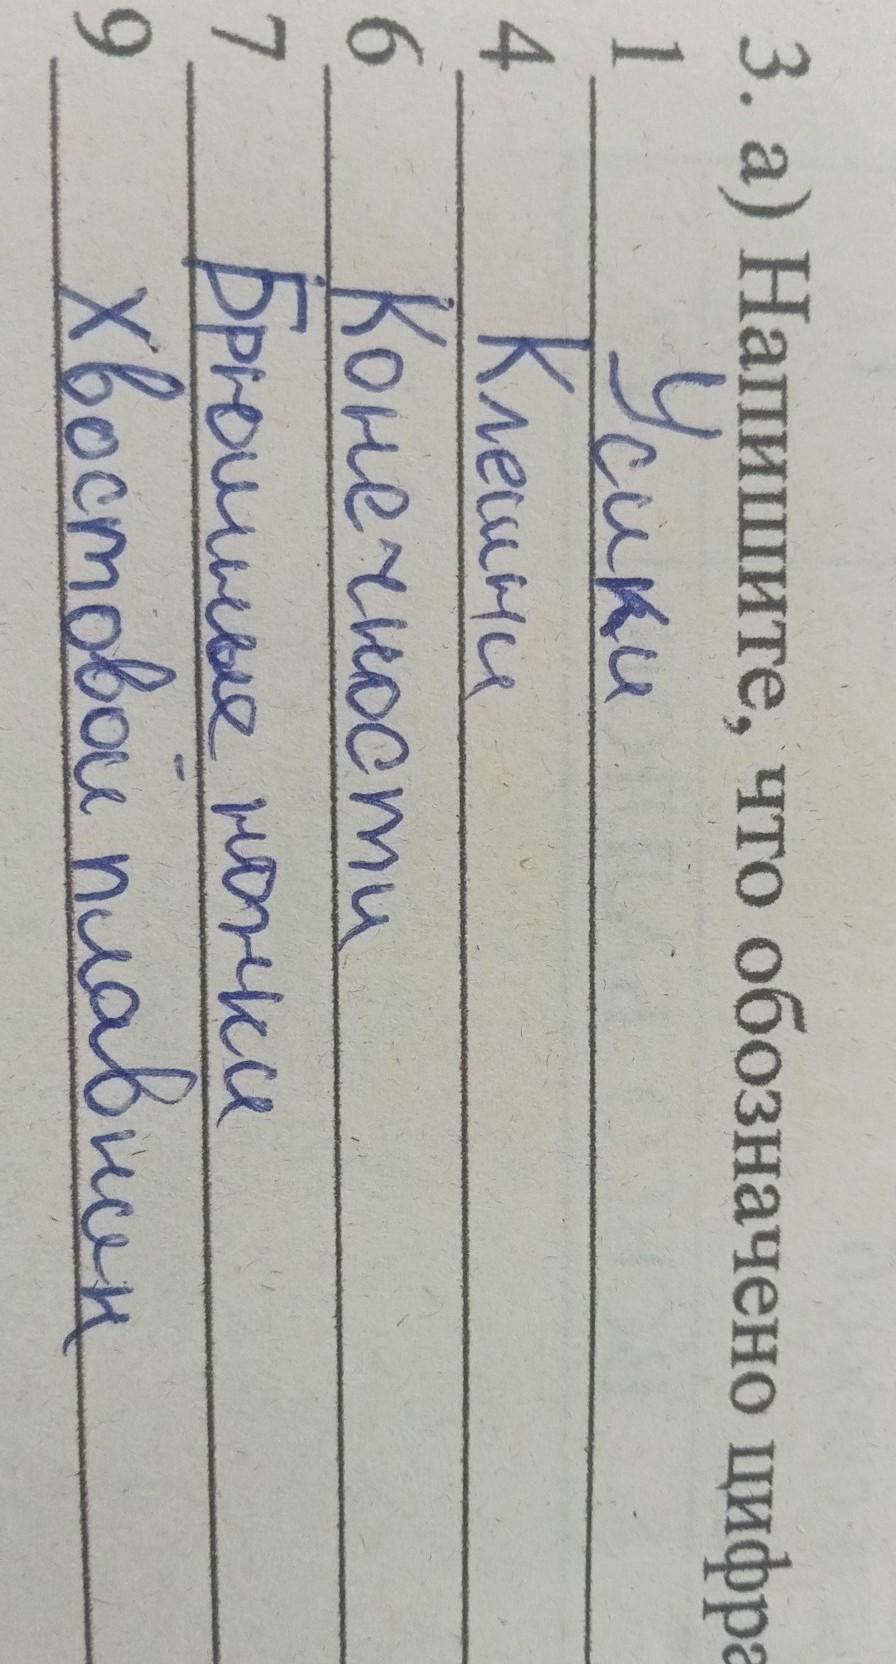 3. а) Напишите, что обозначено цифра
1 Усики
4 Клешни
6 Конечности
7 Брюшные ножки
9 Хвостовой плавник